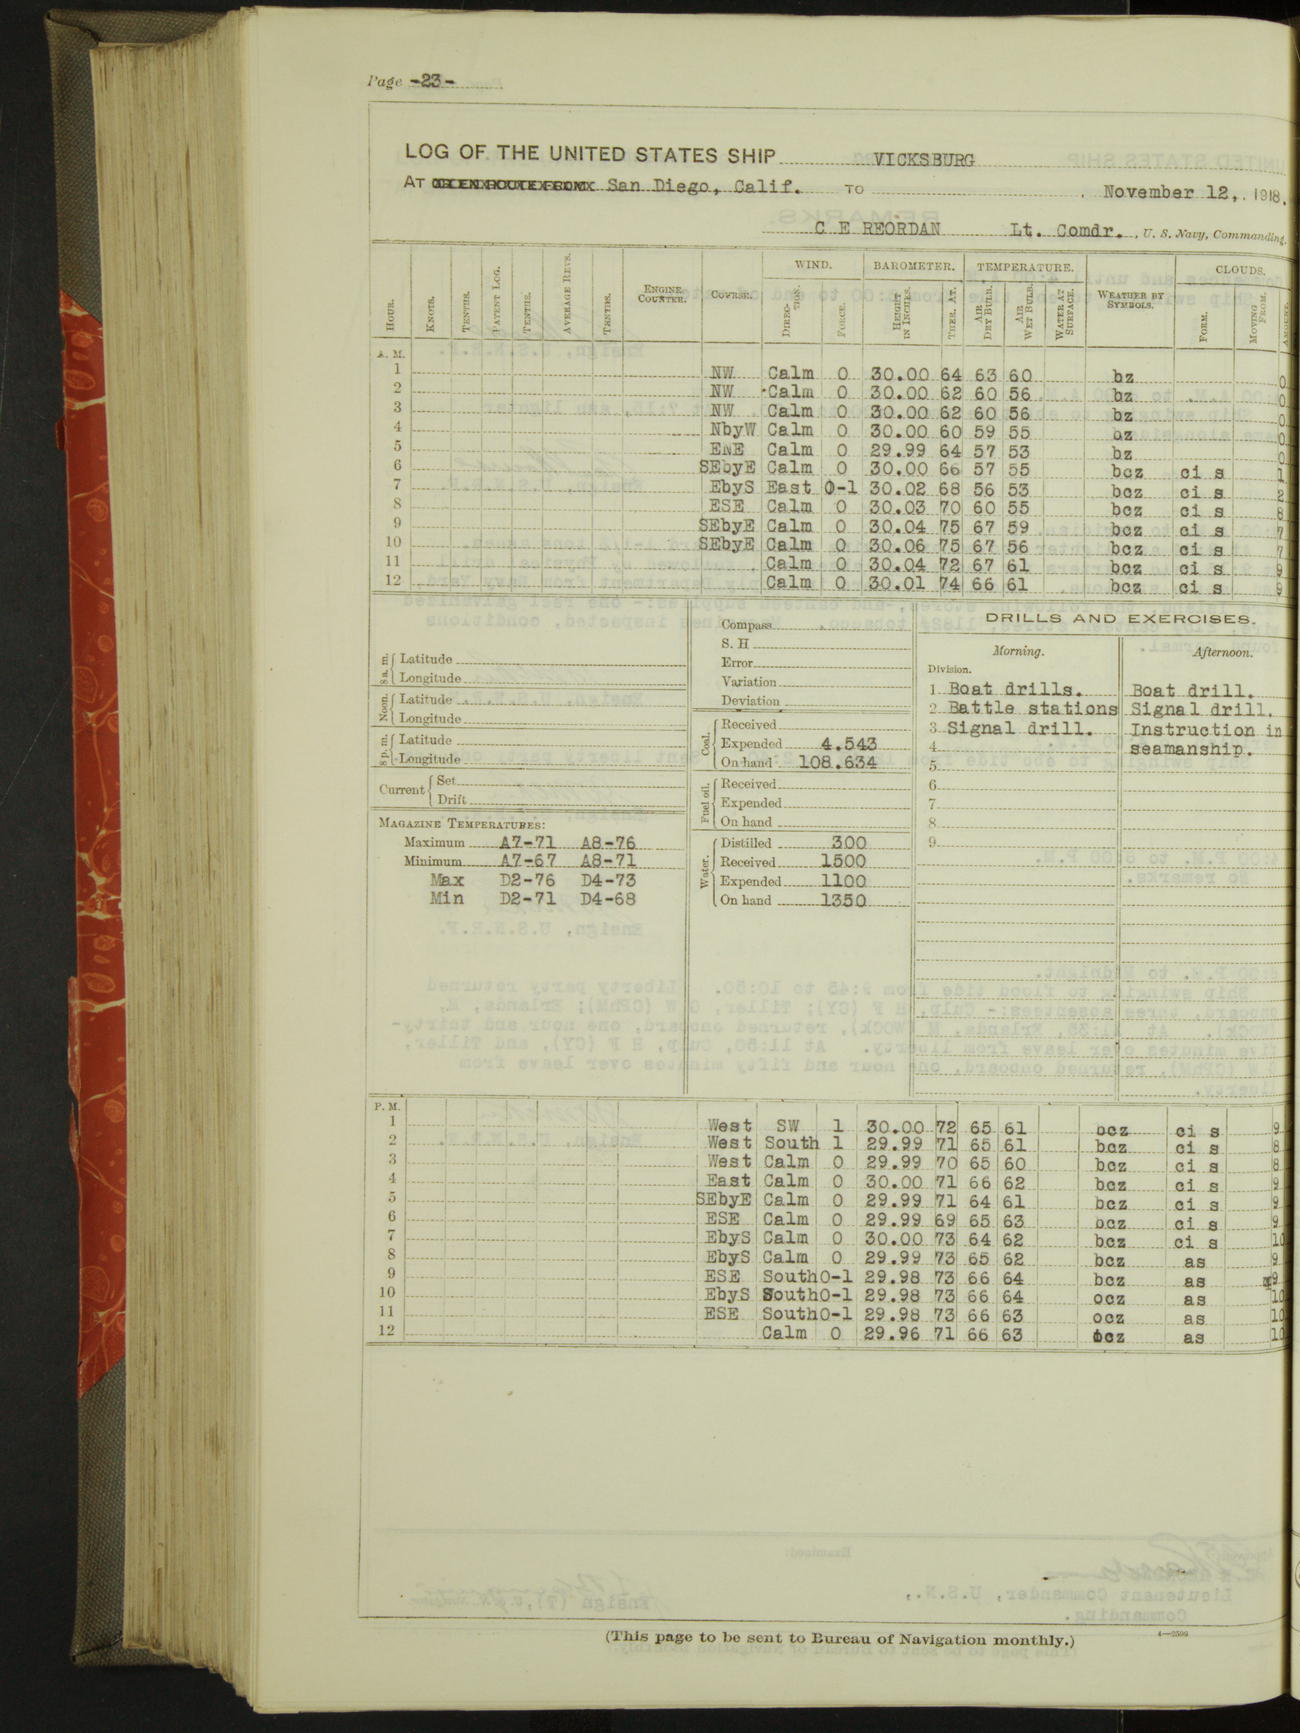 Page -23-
LOG OF THE UNITED STATES SHIP VICKSBURG
AT San Diego, Calif. TO , November 12, 1918.
C E REORDAN Lt. Comdr. , U. S. Navy, Commanding.
HOUR. KNOTS. TENTHS. PATENT LOG. TENTHS. AVERAGE REVS. TENTHS. ENGINE COUNTER. COURSE. WIND. DIRECTION. FORCE. BAROMETER. HEIGHT IN INCHES. THER. AT. TEMPERATURE. AIR DRY BULB. AIR WET BULB. WATER AT SURFACE. WEATHER BY SYMBOLS. CLOUDS. FORM. MOVING FROM. AMOUNT
A. M.
1 NW Calm 0 30.00 64 63 60 bz 0
2 NW Calm 0 30.00 62 60 56 bz 0
3 NW Calm 0 30.00 62 60 56 bz 0
4 NbyW Calm 0 30.00 60 59 55 bz 0
5 ENE Calm 0 29.99 64 57 53 bz 0
6 SEbyE Calm 0 30.00 66 57 55 bcz ci s 1
7 EbyS East 0-1 30.02 68 56 53 bcz ci s 2
8 ESE Calm 0 30.03 70 60 55 bcz ci s 8
9 SEbyE Calm 0 30.04 75 67 59 bcz ci s 7
10 SEbyE Calm 0 30.06 75 67 56 bcz ci s 7
11 Calm 0 30.04 72 67 61 bcz ci s 9
12 Calm 0 30.01 74 66 61 bcz ci s 9
8 a. m. Latitude
Longitude
Noon. Latitude
Longitude
8 p. m. Latitude
Longitude
Current Set
Drift
MAGAZINE TEMPERATURES:
Maximum A7-71 A8-76
Minimum A7-67 A8-71
Max D2-76 D4-73
Min D2-71 D4-68
Compass
S. H
Error
Variation
Deviation
Coal. Received
Expended 4.543
On hand 108.634
Fuel oil. Received
Expended
On hand
Water. Distilled 300
Received 1500
Expended 1100
On hand 1350
DRILLS AND EXERCISES.
Morning. Afternoon.
Division.
1 Boat drills. Boat drill.
2 Battle stations Signal drill.
3 Signal drill. Instruction in
4 seamanship.
5
6
7
8
9
P. M.
1 West SW 1 30.00 72 65 61 bcz ci s 9
2 West South 1 29.99 71 65 61 bcz ci s 8
3 West Calm 0 29.99 70 65 60 bcz ci s 8
4 East Calm 0 30.00 71 66 62 bcz ci s 9
5 SEbyE Calm 0 29.99 71 64 61 bcz ci s 9
6 ESE Calm 0 29.99 69 65 63 bcz ci s 9
7 EbyS Calm 0 30.00 73 64 62 bcz ci s 10
8 EbyS Calm 0 29.99 73 65 62 bcz as 9
9 ESE South 0-1 29.98 73 66 64 bcz as 9
10 EbyS South 0-1 29.98 73 66 64 ocz as 10
11 ESE South 0-1 29.98 73 66 63 ocz as 10
12 Calm 0 29.96 71 66 63 ocz as 10
(This page to be sent to Bureau of Navigation monthly.)
4—2599